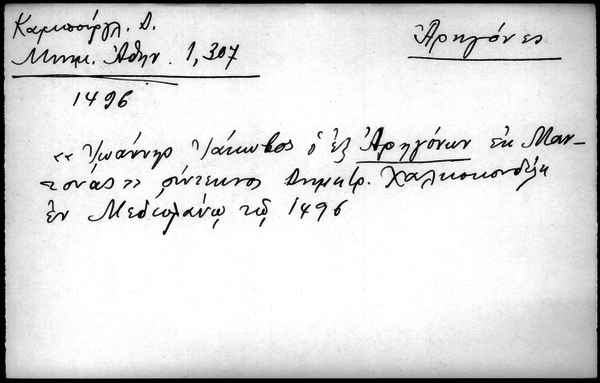 Καμπούργλ. Δ.
Μνημ. Ἀθην. 1, 307
Ἀρηγόνες
1496
«Ἰωάννης Ἰάκωβος ὁ ἐξ Ἀρηγόνων ἐκ Μαν-
τούας» σύντεκνος Δημητρ. Χαλκοκονδύλη
ἐν Μεδιολάνῳ τῷ 1496